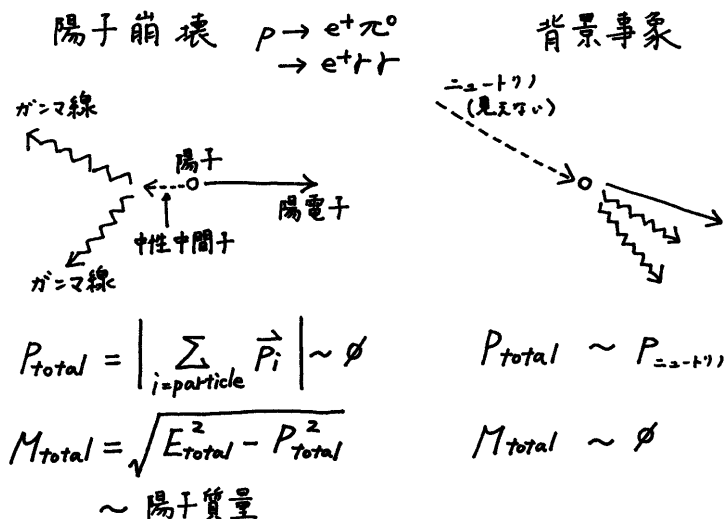 陽子崩壊
p → e+ π0
→ e+ γ γ
ガンマ線
陽子
陽電子
中性中間子
ガンマ線
P total = | Σ i=particle P⃗i | ~ ∅
M total = √(E²total - P²total)
~ 陽子質量
背景事象
ニュートリノ
(見えない)
P total ~ P ニュートリノ
M total ~ ∅